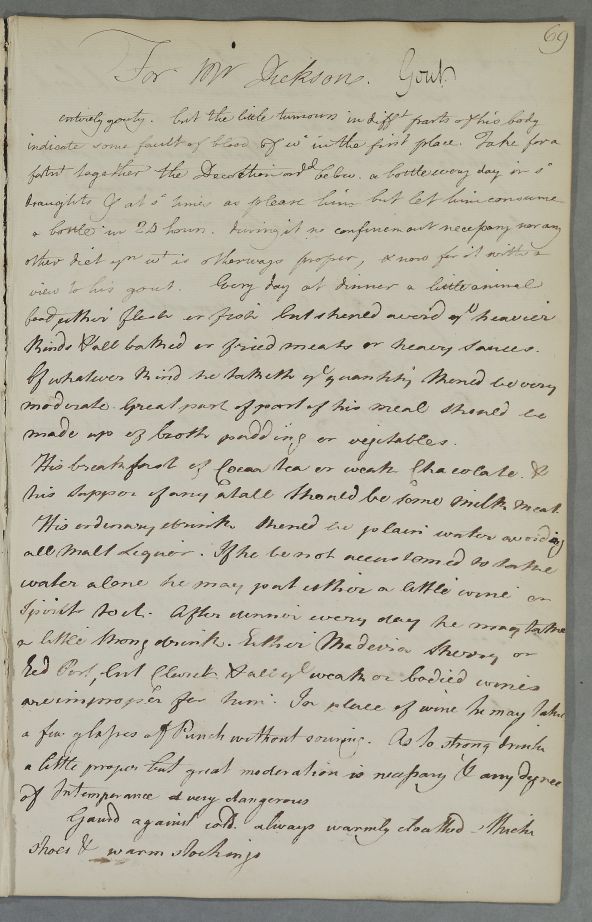 69
For Mr Dickson. Gout
entirely gouty. but the little tumours in difft parts of his body
indicate some fault of blood of wt in the first place. Take for a
fortnt together the Decoction ordd below. a bottle every day or st
draughts & at st times as please him but let him consume
a bottle in 24 hours. during it no confinement necessary nor any
other diet yn wt is otherways proper, & now for it with a
view to his gout. Every day at dinner a little animal
food either flesh or fish but should avoid ye heavier
kinds & all baked or fried meats or heavy sauces.
Of whatever kind he taketh ye quantity should be very
moderate. Great part of part of his meal should be
made up of broth pudding or vegetables.
His breakfast of Cocoa tea or weak Chacolate. &
his supper if any atall should be some milk meat
His ordinary drink should be plain water avoiding
all Malt Liquor. If he be not accustomed to take
water alone he may put either a little wine or
Spirits to it. After dinner every day he may take
a little strong drink. Either Madeira Sherry or
Red Port, but Claret & all ye weak or bodied wines
are improper for him. In place of wine he may take
a few glasses of Punch without souring. As to strong drink
a little proper but great moderation is necessary & any degree
of Intemperance very dangerous
Gaurd against cold. always warmly cloathed thick
shoes & warm stockings